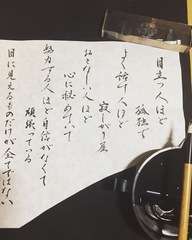 目立つ人ほど
孤独で
よく話す人ほど
寂しがり屋
おとなしい人ほど
心に秘めていて
努力する人ほど自信がなくて
頑張っている
目に見えるものだけが全てではない